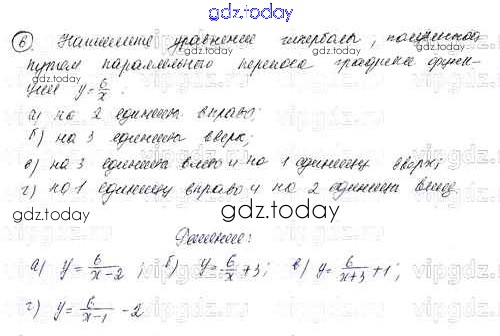 gdz.today
⑥ Напишите уравнение гиперболы, полученной
путем параллельного переноса графика функ-
ции y=6/x.
а) на 2 единицы вправо;
б) на 3 единицы вверх;
в) на 3 единицы влево и на 1 единицу вверх;
г) на 1 единицу вправо и на 2 единицы вниз.
gdz.today
Решение:
а) y = 6/(x-2); б) y = 6/x + 3; в) y = 6/(x+3) + 1;
г) y = 6/(x-1) - 2
gdz.today